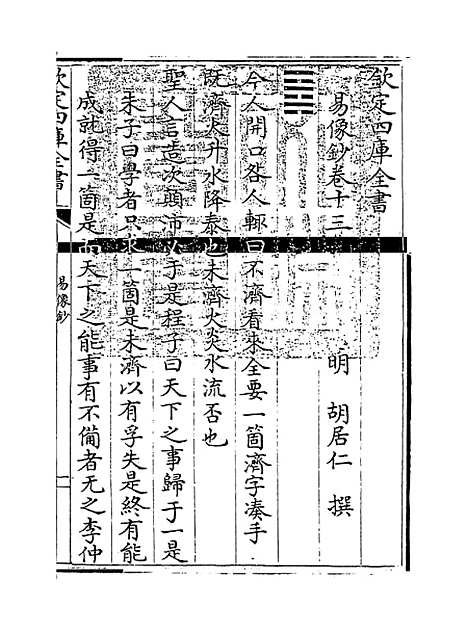 欽定四庫全書
易像鈔卷十三
明 胡居仁 撰
今人開口咎人輒曰不濟看來全要一箇濟字湊手
既濟火升水降泰也未濟火炎水流否也
聖人言造次顛沛必于是程子曰天下之事歸于一是
朱子曰學者只求一箇是未濟以有孚失是終有能
成就得一箇是而天下之能事有不備者无之李仲
欽定四庫全書
易像鈔
一